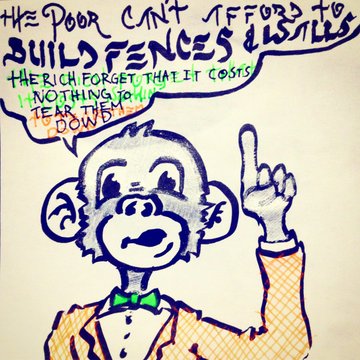 THE POOR CAN'T AFFORD TO
BUILD FENCES & WALLS
THE RICH FORGET THAT IT COSTS
NOTHING TO
TEAR THEM
DOWN